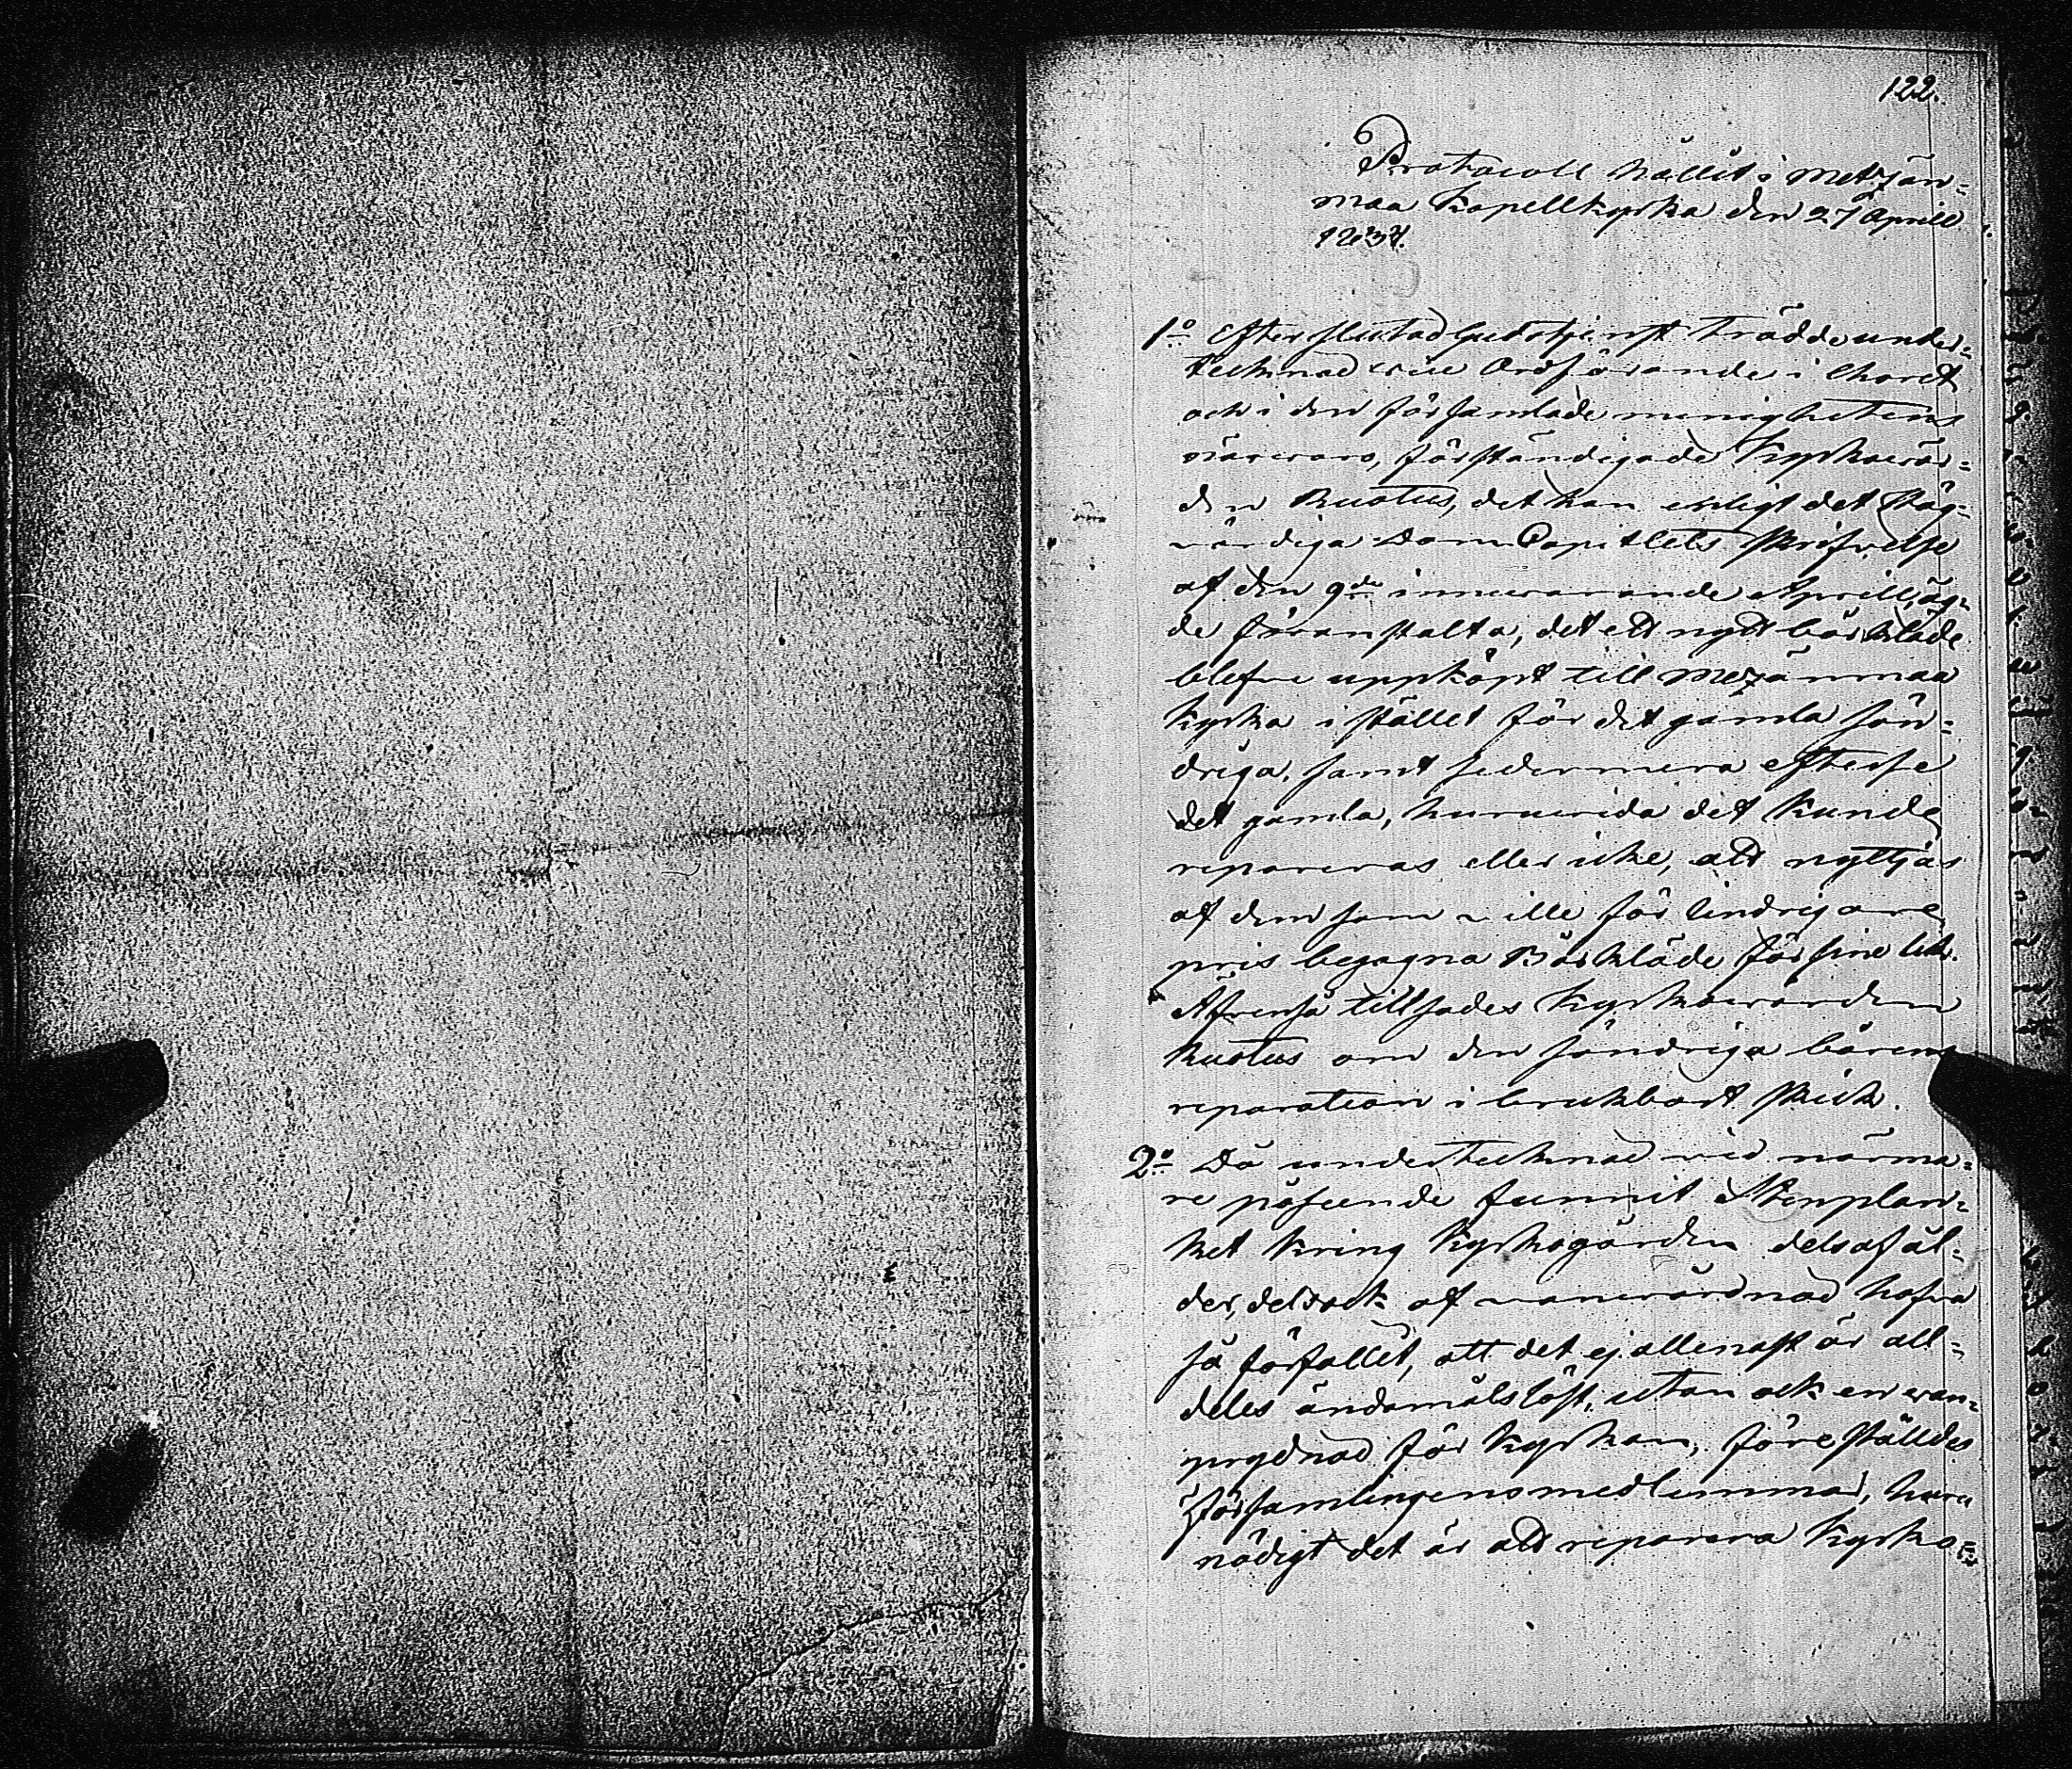 122.
Protocoll hållit i Metzän=
maa Kapellkyrka den 27 Aprill
1834.
1:o Efter slutad Gudstjenst trädde under=
tecknad vice Ordförande i Choret
och i den församlade menighetens
närvaro, förständigade Kyrkovär=
den Kustus, det han enligt det Hög=
värdiga DomCapitlets skrifvelse
af den 9:de innevarande Aprill, äg=
de föranstalta, det ett nytt bårkläde
blefve uppköpt till Mezänmaa
Kyrka i stället för det gamla sön=
driga, samt sedermera efterse
det gamla, huruvida det kunde
repareras eller icke, att nyttjas
af dem som ville för lindrigare
pris begagna Bårkläde för sine lik.
Äfvenså tillsades Kyrkovärden
Kustus om den söndriga bårens
reparation i brukbart skick.
2:o Då undertecknad vid närma=
re påseende funnit Stenplan=
ket kring Kyrkogården dels af ål=
der, dels ock af vanvårdnad hafva
så förfallit, att det ej allenast är all=
deles ändamålslöst, utan ock en van=
prydnad för Kyrkan, föreställdes
församlingens medlemmar, huru
nödigt det är att reparera Kyrko=